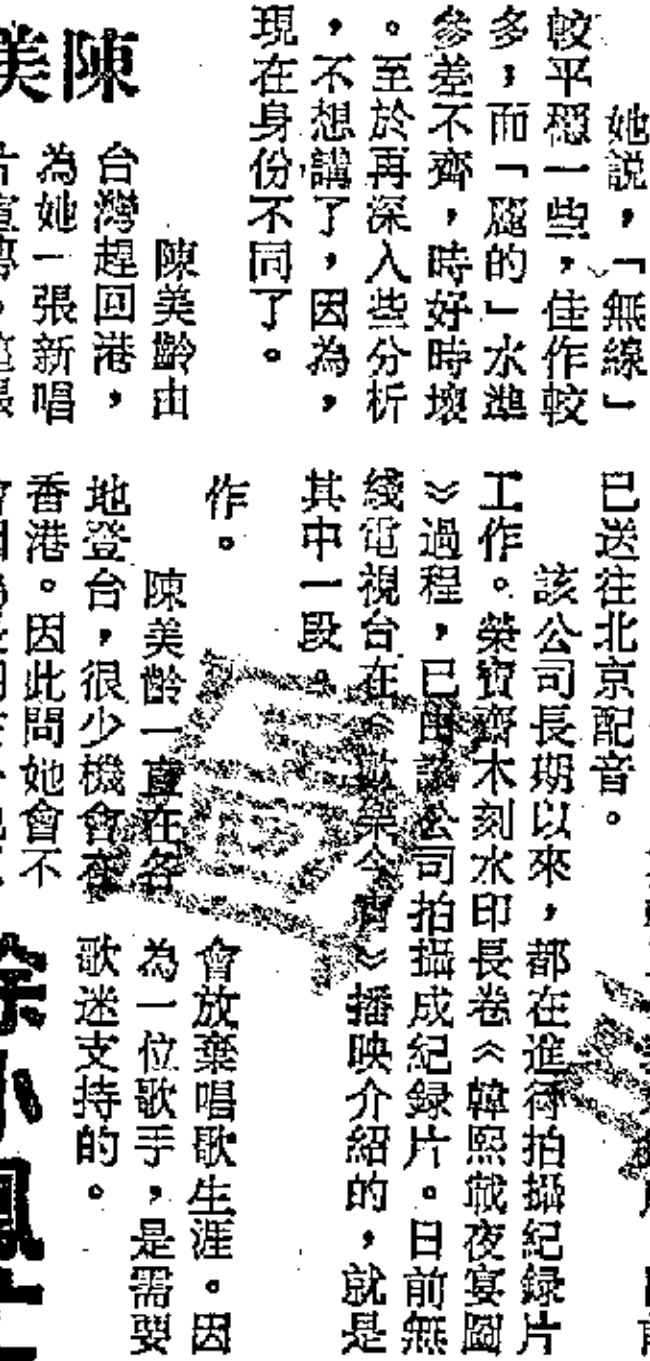 她說，「無線」
較平穩一些，佳作較
多，而「麗的」水準
參差不齊，時好時壞
。至於再深入些分析
，不想講了，因為，
現在身份不同了。
陳美
陳美齡由
台灣趕回港，
為她一張新唱
已送往北京配音。
該公司長期以來，都在進行拍攝紀録片
工作。榮寶齋木刻水印長卷《韓熙載夜宴圖
》過程，已由該公司拍攝成紀録片。日前無
綫電視台在《歡樂今宵》播映介紹的，就是
其中一段。
作。
陳美齡一直在各
地登台，很少機會在
香港。因此問她會不
會放棄唱歌生涯。因
為一位歌手，是需要
歌迷支持的。
徐小鳳